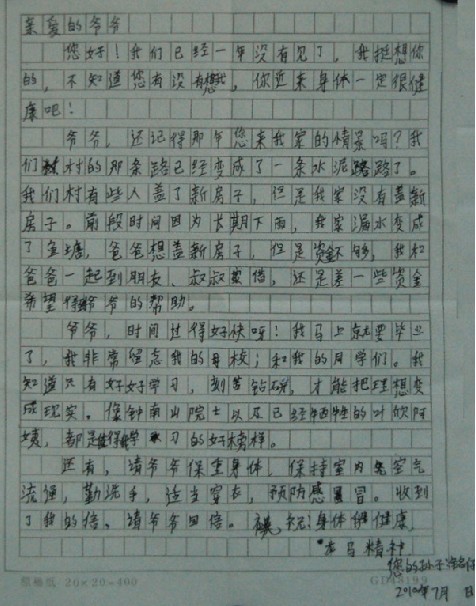 亲爱的爷爷
您好！我们已经一年没有见了，我挺想你
的，不知道您有没有想我，你近来身体一定很健
康吧！
爷爷，还记得那年您来我家的情景吗？我
们村的那条路已经变成了一条水泥路了。
我们村有些人盖了新房子，但是我家没有盖新
房子。前段时间因为长期下雨，我家漏水变成
了鱼塘，爸爸想盖新房子，但是资金不够，我和
爸爸一起到朋友、叔叔家借，还是差一些资金
希望得爷爷的帮助。
爷爷，时间过得好快呀！我马上就要毕业
了，我非常留恋我的母校；和我的同学们。我
知道只有好好学习，刻苦钻研，才能把理想变
成现实。像钟南山院士以及已经牺牲的叶欣阿
姨，都是值得学习的好榜样。
还有，请爷爷保重身体，保持室内空气
流通，勤洗手，适当穿衣，预防感冒。收到
了我的信，请爷爷回信。祝身体健康
龙马精神
您的孙子
2010年7月 日
原稿纸 20×20=400